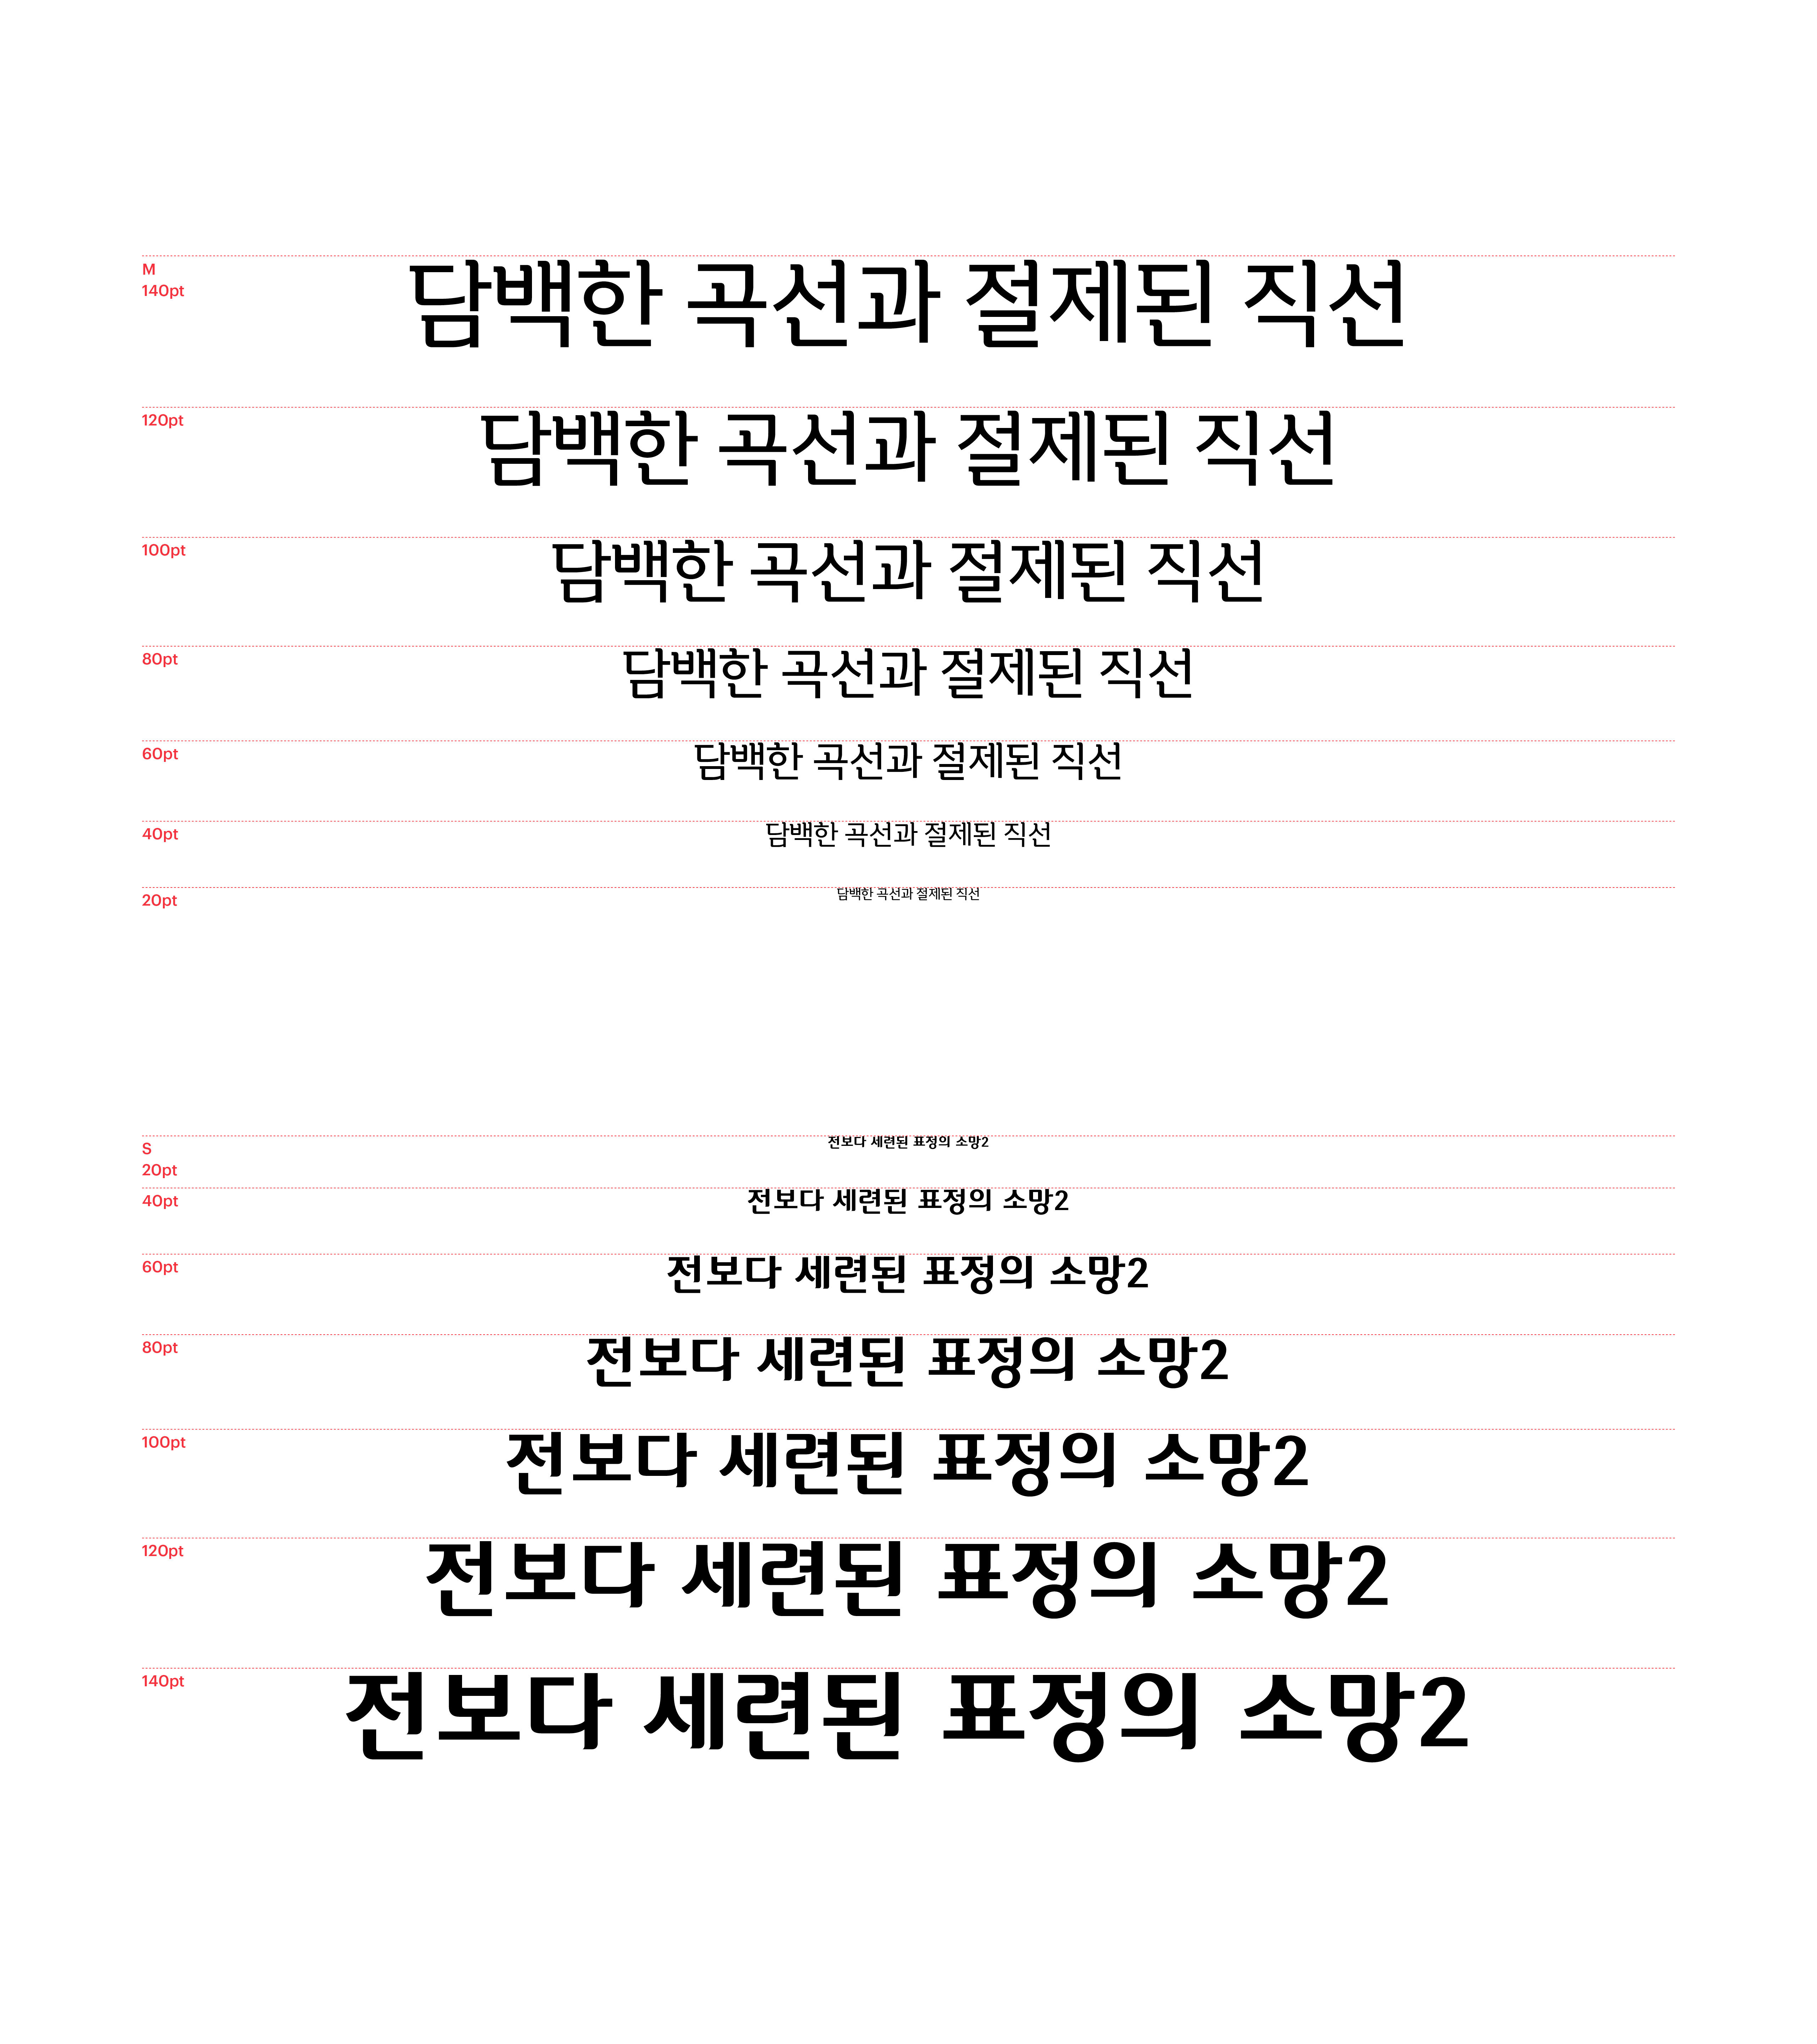 M
140pt 담백한 곡선과 절제된 직선
120pt 담백한 곡선과 절제된 직선
100pt 담백한 곡선과 절제된 직선
80pt 담백한 곡선과 절제된 직선
60pt 담백한 곡선과 절제된 직선
40pt 담백한 곡선과 절제된 직선
20pt 담백한 곡선과 절제된 직선
S 전보다 세련된 표정의 소망2
20pt
40pt 전보다 세련된 표정의 소망2
60pt 전보다 세련된 표정의 소망2
80pt 전보다 세련된 표정의 소망2
100pt 전보다 세련된 표정의 소망2
120pt 전보다 세련된 표정의 소망2
140pt 전보다 세련된 표정의 소망2